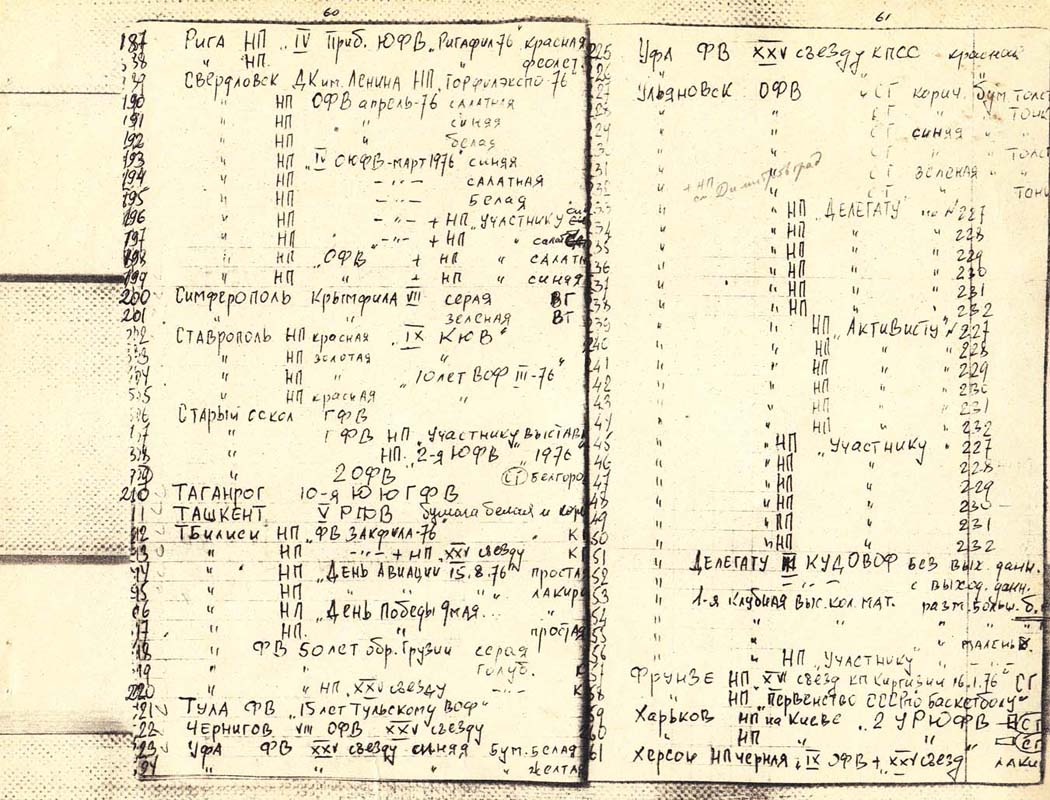 60
187 Рига НП „IV Приб. ЮФВ „Ригафил 76" красная
188 „ НП. „ феолет.
189 Свердловск ДК им. Ленина НП „Горфилэкспо-76
190 „ НП ОФВ апрель-76 салатная
191 „ НП „ синяя
192 „ НП „ белая
193 „ НП „IV ОКФВ-март 1976" синяя
194 „ НП -„- салатная
195 „ НП -„- белая
196 „ НП -„- + НП „Участнику
197 „ НП -„- + НП „
198 „ НП „ОФВ + НП „ салатн
199 „ НП „ + НП „ синяя
200 Симферополь Крымфила VII серая ВГ
201 „ „ зеленая ВГ
Ставрополь НП красная „IX КЮВ"
„ НП золотая „
„ НП „ „10 лет ВОФ III-76"
„ НП красная „
Старый оскол ГФВ
„ ГФВ НП „Участнику выставк
„ НП „2-я ЮФВ „ 1976"
„ 2 ОФВ СГ Белгоро
210 Таганрог 10-я ЮЮГФВ
11 Ташкент V РЮВ бумага белая и
12 Тбилиси НП „ФВ Закфила-76" „
13 „ НП -„- + НП „XXV съезду" КП
14 „ НП „День Авиации 15.8.76" проста
„ НП „ „ лакир
„ НП „День Победы 9 мая.
17 „ НП. „ „ простая
18 „ ФВ 50 лет обр. Грузии серая
19 „ „ голуб.
220 „ „ НП „XXV съезду -„-
21 Тула ФВ „15 лет Тульскому ВОФ"
22 Чернигов VIII ОФВ XXV съезду
23 Уфа ФВ XXV съезду синяя Бум. Белая
„ „ „ „ желтая
61
225 Уфа ФВ XXV съезду КПСС красная
Ульяновск ОФВ „ СГ корич. бум. толст
„ „ СГ „ „ тонк
29 „ „ СГ синяя „ „
„ „ СГ „ „ толс
31 „ „ СГ зеленая „ „
+ НП Димитровград „ „ СГ „ „ тонк
„ „ НП „Делегату" „ № 227
34 „ „ НП „ „ 228
35 „ „ НП „ „ 229
36 „ „ НП „ „ 230
37 „ „ НП „ „ 231
38 „ „ НП „ „ 232
39 „ „ НП „Активисту" № 227
240 „ „ НП „ „ 228
41 „ „ НП „ „ 229
42 „ „ НП „ „ 230
43 „ „ НП „ „ 231
44 „ „ НП „ „ 232
45 „ „ НП „Участнику „ 227
46 „ „ НП „ 228
47 „ „ НП „ 229
48 „ „ НП „ 230
49 „ „ НП „ 231
50 „ „ НП „ 232
51 „ Делегату КУДОВОФ без вых. данн.
52 „ „ -„- с выход. данн.
53 „ 1-я клубная выс. кол. мат. разм. больш. б.
54 „ „ „ „
55 „ „ „ маленьк.
56 „ „ НП „Участнику „ -„-
57 Фрунзе НП „XVI съезд КП Киргизии 16.1.76" СГ
58 „ НП „Первенство СССР по баскетболу"
59 Харьков НП на Киеве „2 УРЮФВ СГ
60 „ НП „ „ СГ
61 Херсон НП черная „IX ОФВ + „XXV съезд лаки